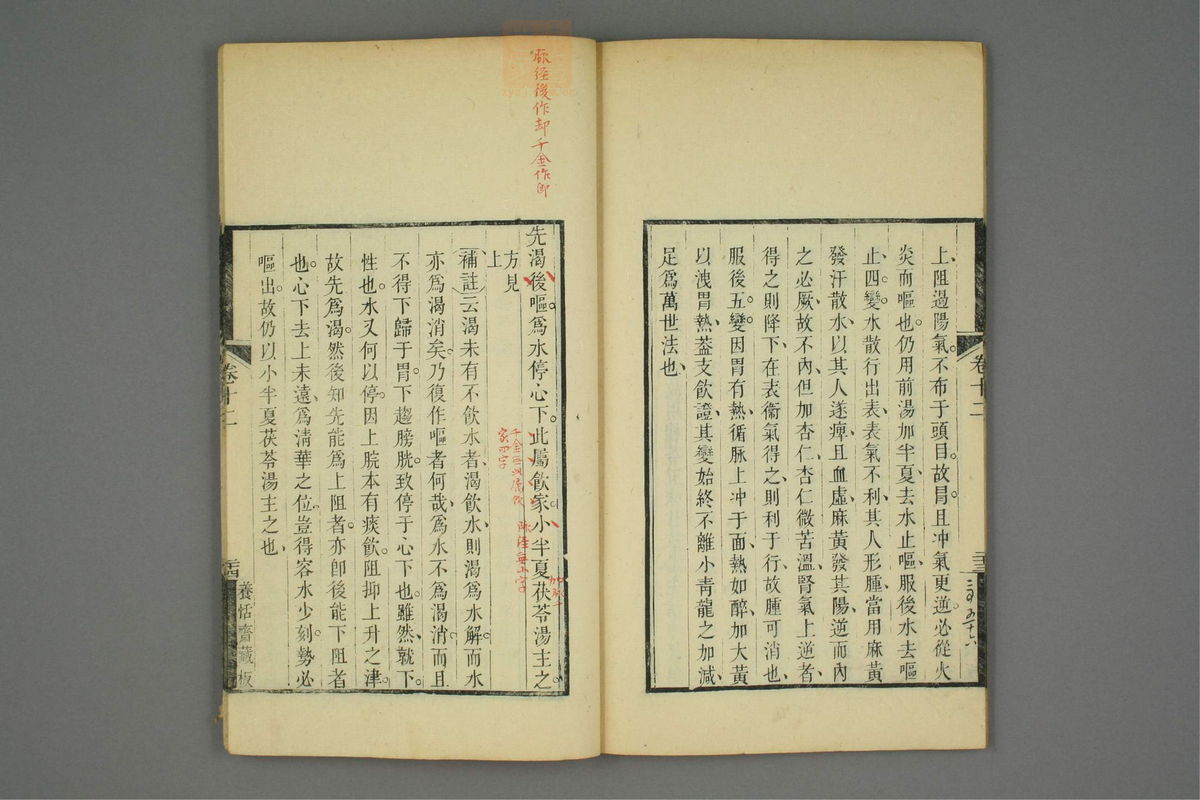 上阻過陽氣不布于頭目故冐且冲氣更逆必從火
炎而嘔也仍用前湯加半夏去水止嘔服後水去嘔
止四變水散行出表表氣不利其人形腫當用麻黃
發汗散水以其人遂痺且血虛麻黃發其陽逆而內
之必厥故不內但加杏仁杏仁微苦溫腎氣上逆者
得之則降下在表衞氣得之則利于行故腫可消也
服後五變因胃有熱循脉上冲于面熱如醉加大黃
以洩胃熱葢支飲證其變始終不離小青龍之加減
足爲萬世法也
卷十二
先渴後嘔爲水停心下此屬飲家小半夏茯苓湯主之
方見
上
補註云渴未有不飲水者渴飲水則渴爲水解而水
亦爲渴消矣乃復作嘔者何哉爲水不爲渴消而且
不得下歸于胃下趨膀胱致停于心下也雖然就下
性也水又何以停因上脘本有痰飲阻抑上升之津
故先爲渴然後知先能爲上阻者亦卽後能下阻者
也心下去上未遠爲清華之位豈得容水少刻勢必
嘔出故仍以小半夏茯苓湯主之也
卷十二
養恬齋藏板
脉經後作却千金作卽
千金無此屬飲
家四字
脉經無下字